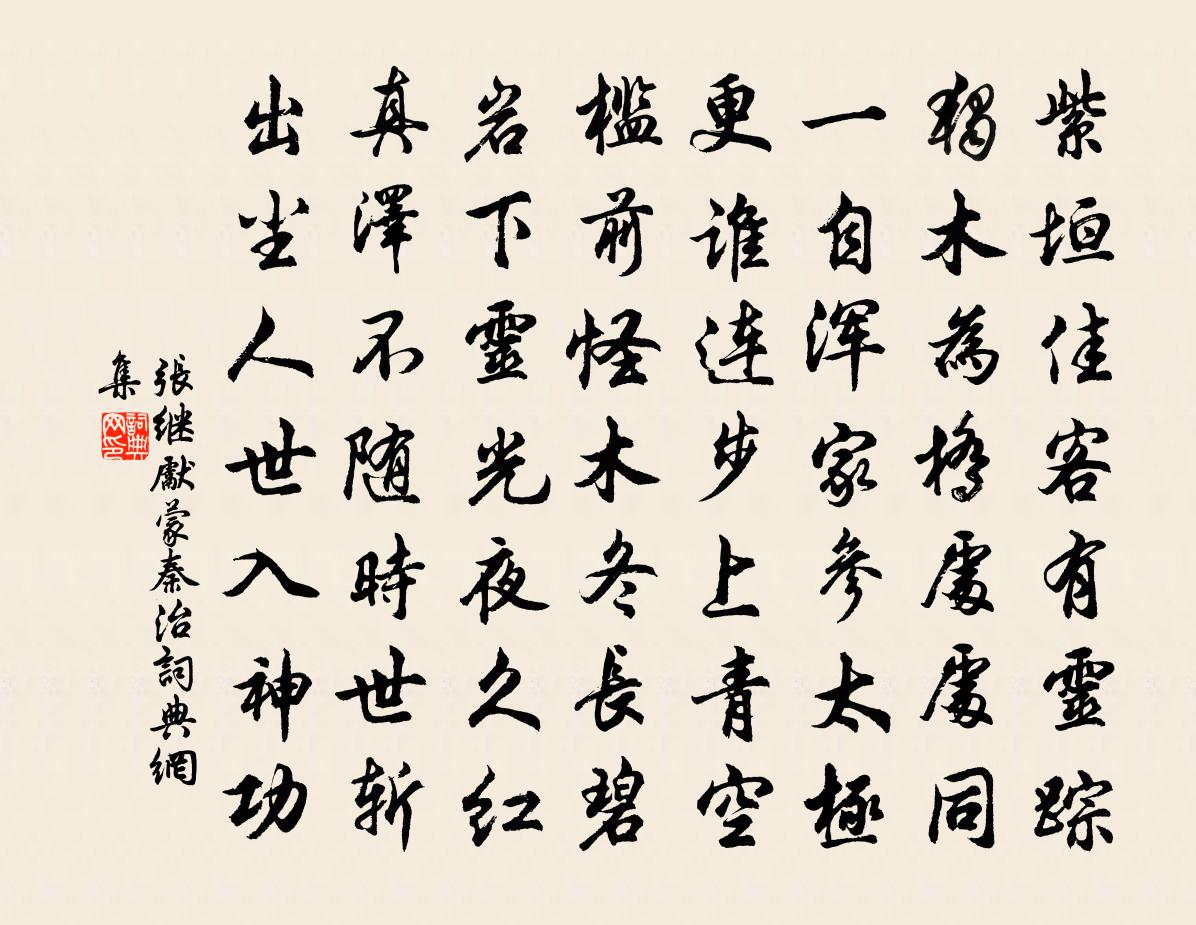 紫垣佳客有靈踪
獨木為橋處處同
一自浑家參太極
更誰连步上青空
檻前怪木冬長碧
岩下靈光夜久红
真澤不随時世斩
出尘人世入神功
張继獻蒙秦治詞典網
集
詞典网印